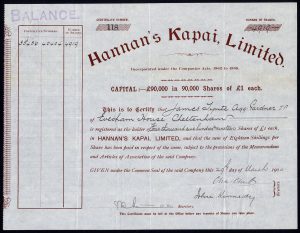 BALANCE.
CERTIFICATE NUMBER.
118
NUMBER OF SHARES.
4019
Hannan's Kapai, Limited.
Incorporated under the Companies Acts, 1862 to 1898.
CAPITAL: £90,000 in 90,000 Shares of £1 each.
This is to Certify that James Agg Gardner JP
of Evesham House Cheltenham
is registered as the holder of Shares of £1 each,
in HANNAN'S KAPAI, LIMITED, and that the sum of Eighteen Shillings per
Share has been paid in respect of the same, subject to the provisions of the Memorandum
and Articles of Association of the said Company.
GIVEN under the Common Seal of the said Company this day of March
John Kennedy
Secretary.
This Certificate must be left at the Office before any Transfer of Shares can take place.